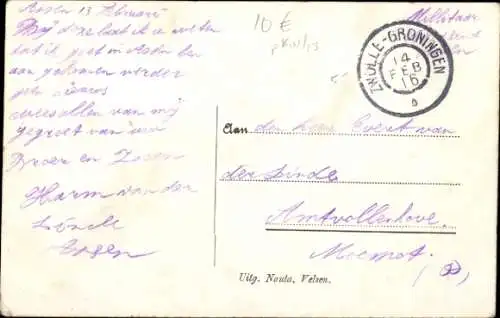 Assen 13 Februari
Bij deze laat ik u weten
dat ik goed in Assen ben
aan gekomen verder
geen nieuws
wees allen van mij
gegroet van uw
Broer en Zoon
Harm van der
Linde
Assen
10 €
Militair
ZWOLLE-GRONINGEN
14
FEB
16
Aan den Heer Evert van
der Linde
Ambtvollenhove
Moespot
Uitg. Nauta, Velsen.